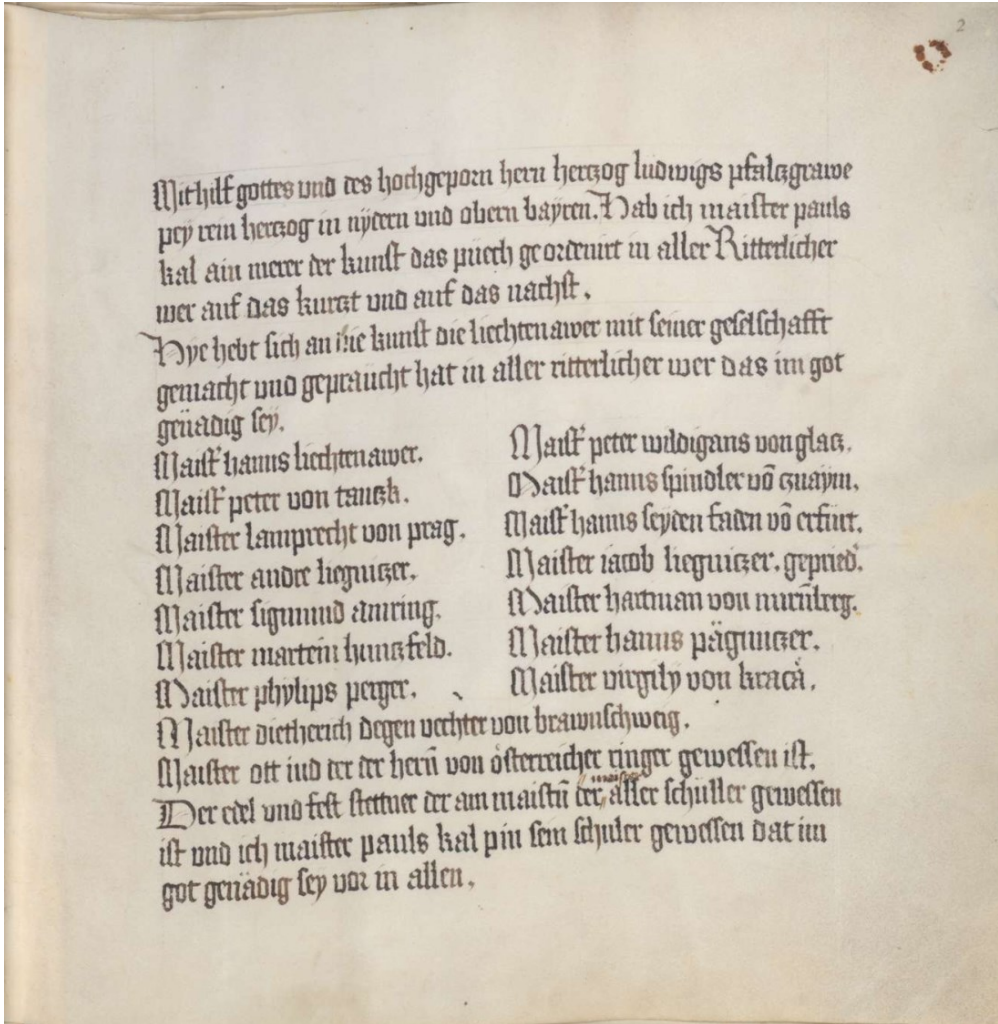 2
Mit hilf gottes vnd des hochgeporn hern hertzog ludwigs pfaltzgrawe
pey rein hertzog in nydern vnd obern bayren. Hab ich maister pauls
kal ain merer der kunst das puech geordenirt in aller Ritterlicher
wer auf das kurtzt vnd auf das nachst.
Hye hebt sich an die kunst die liechtenawer mit seiner geselschafft
gemacht vnd gepraucht hat in aller ritterlicher wer das im got
genädig sey.
Maist' hanns liechtenawer.
Maist' peter von tantzk.
Maister lamprecht von prag.
Maister andre liegnitzer.
Maister sigmund amring.
Maister martein huntzfeld.
Maister phylips perger.
Maist' peter wildigans von glatz.
Maist' hanns spindler vō znaym.
Maist' hanns seyden faden vō erfurt.
Maister iacob liegnitzer. gepried'.
Maister hartman von nurñberg.
Maister hanns pägnützer.
Maister virgily von kracå.
Maister dietherich degen vechter von brawnschweig.
Maister ott iud der der herñ von österreicher ringer gewessen ist.
maister
Der edel vnd fest stettner der am maistñ der aller schuller gewessen
ist vnd ich maister pauls kal pin sein schuler gewessen dat im
got genädig sey vor in allen.